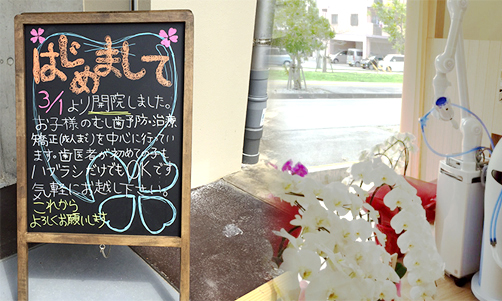 はじめまして
3/1より開院しました。
お子様のむし歯予防・治療
矯正(成人まで)を中心に行ってい
ます。歯医者が初めての方も
ハブラシだけでもOKです
気軽にお越し下さい。
これから
よろしくお願いします。